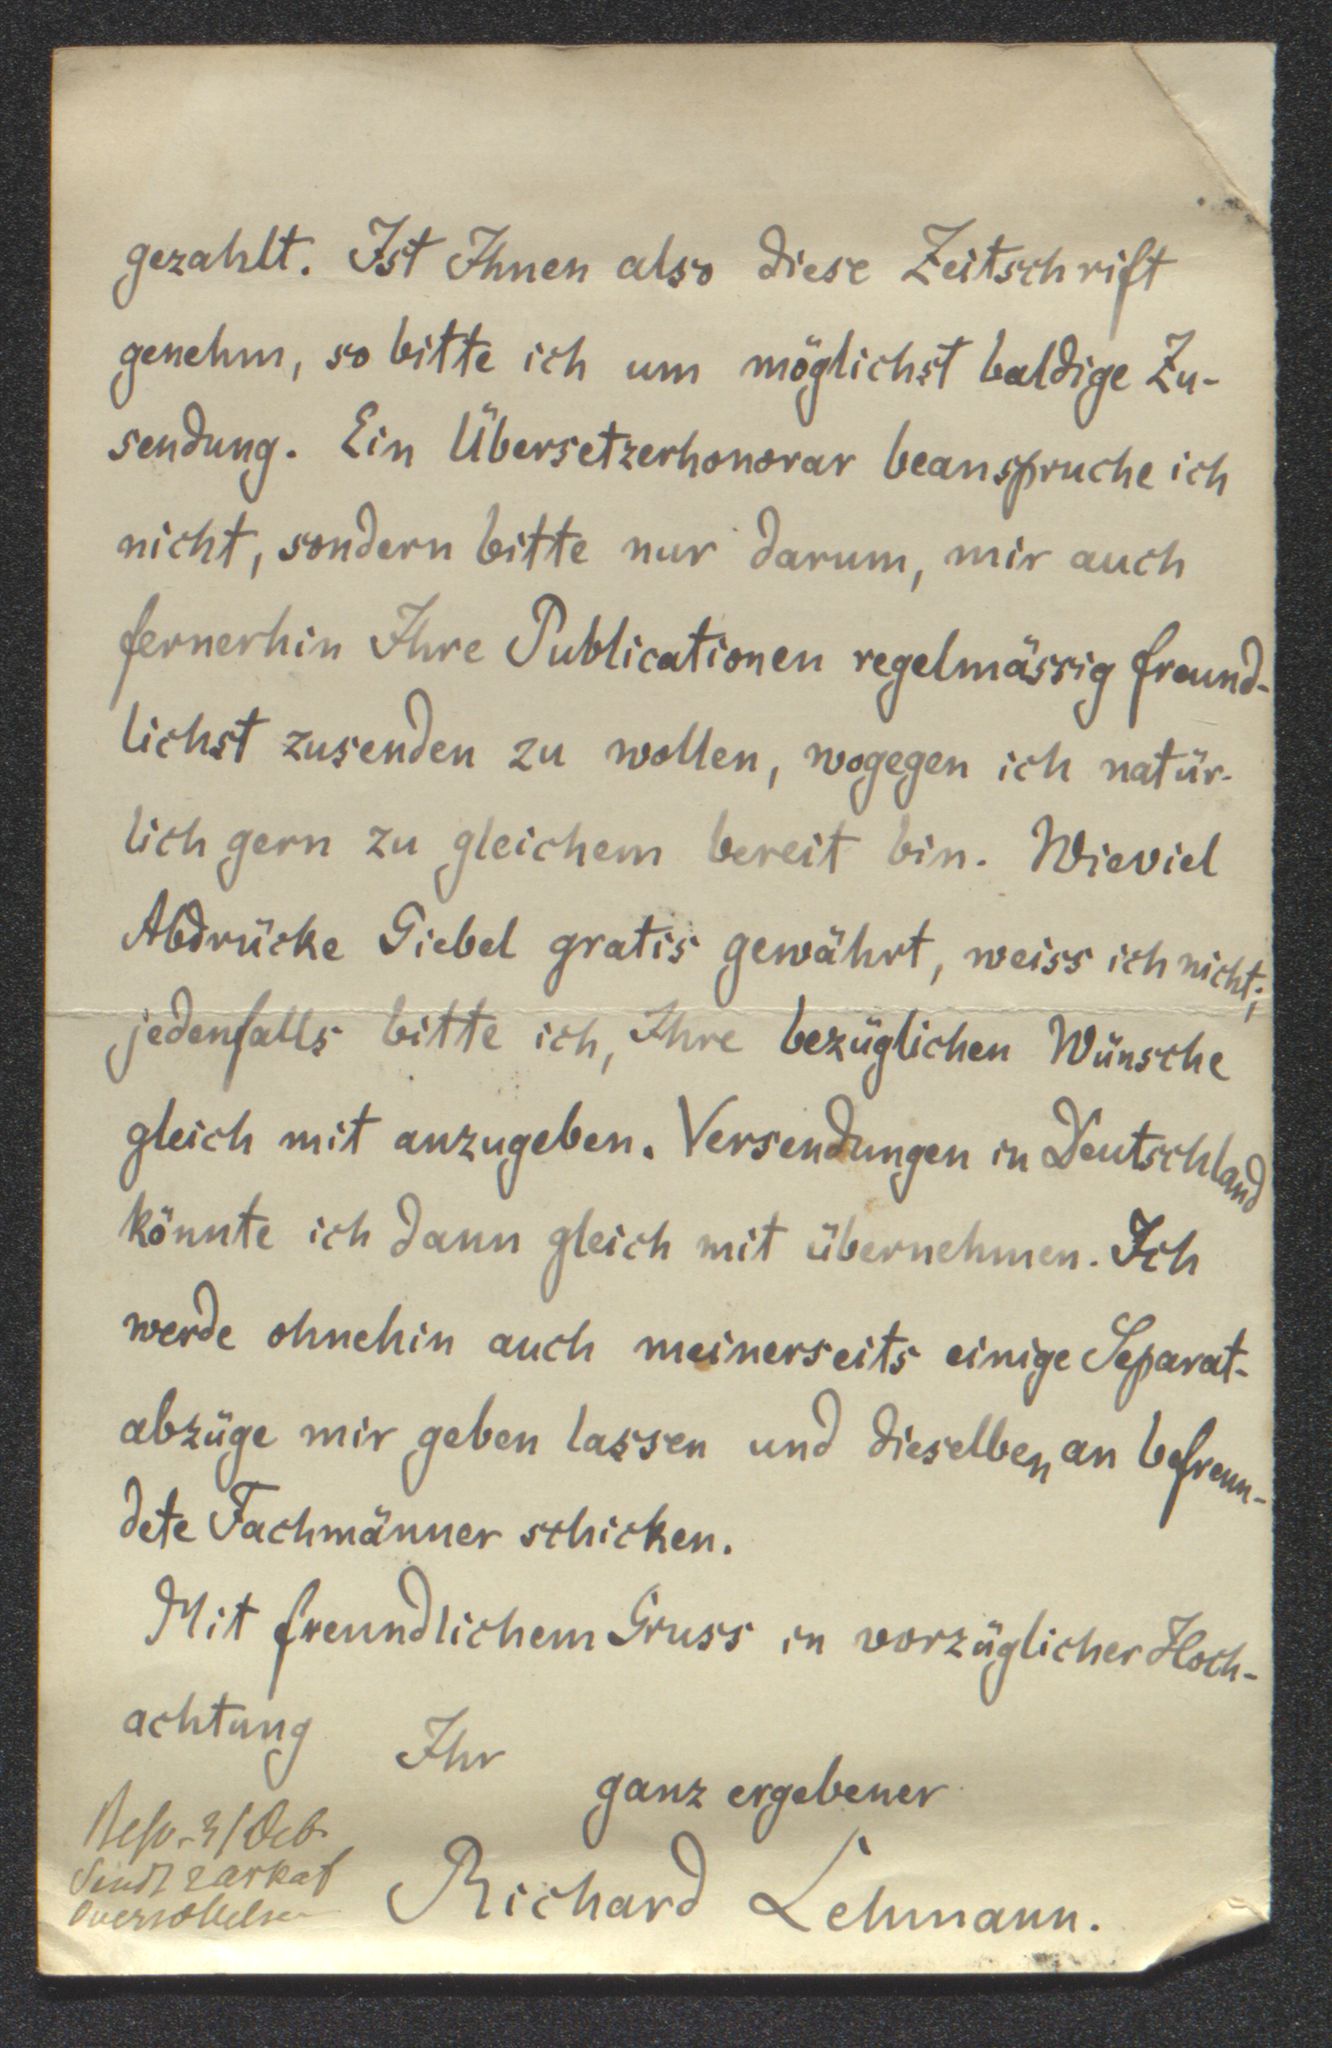 gezahlt. Ist Ihnen also diese Zeitschrift
genehm, so bitte ich um möglichst baldige Zu-
sendung. Ein Übersetzerhonorar beanspruche ich
nicht, sondern bitte nur darum, mir auch
fernerhin Ihre Publicationen regelmässig freund-
lichst zusenden zu wollen, wogegen ich natür-
lich gern zu gleichem bereit bin. Wieviel
Abdrücke Giebel gratis gewährt, weiss ich nicht;
jedenfalls bitte ich, Ihre bezüglichen Wünsche
gleich mit anzugeben. Versendungen in Deutschland
könnte ich dann gleich mit übernehmen. Ich
werde ohnehin auch meinerseits einige Separat-
abzüge mir geben lassen und dieselben an befreun-
dete Fachmänner schicken.
Mit freundlichem Gruss in vorzüglicher Hoch-
achtung Ihr
ganz ergebener
Richard Lehmann.
Sendt 2 arkaf